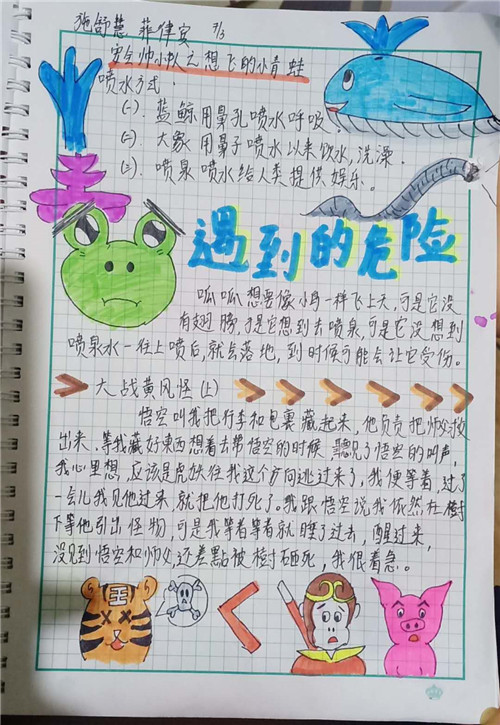 施舒慧 菲律宾 7/3
罗令帅小队之想飞的小青蛙
喷水方式：
(一). 蓝鲸用鼻孔喷水呼吸.
(二). 大象用鼻子喷水以来饮水,洗澡.
(三). 喷泉喷水给人类提供娱乐。
遇到的危险
呱呱想要像小鸟一样飞上天,可是它没
有翅膀,于是它想到去喷泉,可是它没想到
喷泉水一往上喷后,就会落地,到时候可能会让它受伤。
大战黄风怪(上)
悟空叫我把行李和包裹藏起来,他负责把师父救
出来.等我藏好東西想着去帮悟空的时候,聽见了悟空的叫声,
我心里想,应该是虎妖往我这个方向逃过来了,我便等着,过了
一会儿我见他过来就把他打死了。我跟悟空说我依然在樹
下等他引出怪物,可是我等着等着就睡了过去,醒过来,
没见到悟空和师父,还差點被樹砸死,我很着急。
王